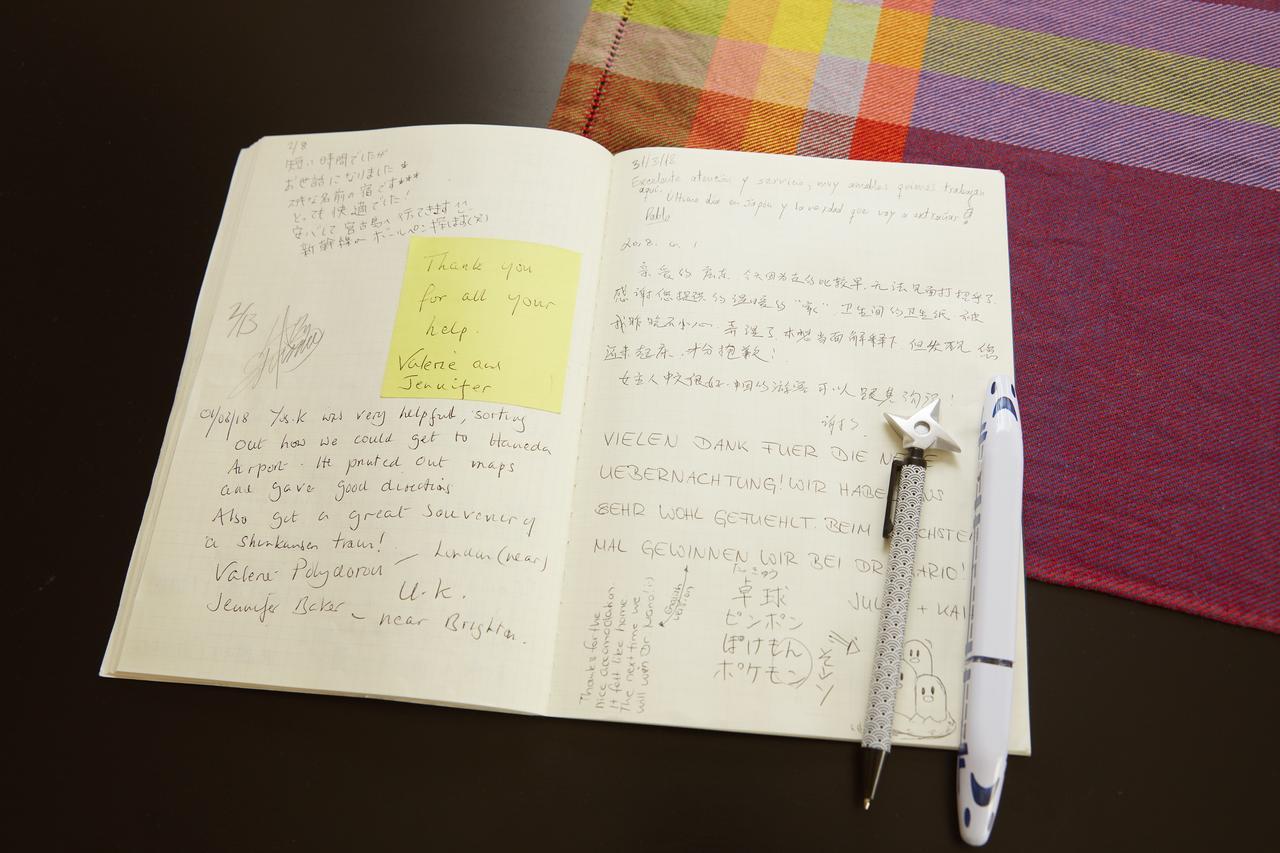 2/8
短い時間でしたが
お世話になりました
な名前の宿です***
とっても快適でした!
して宮古島へ行ってきます
新幹線のボールペン
Thank you
for all your
help.
Valerie and
Jennifer
2/3
01/02/18 was very helpful, sorting
out how we could get to Haneda
Airport. He printed out maps
and gave good directions
Also got a great souvenir of
a shinkansen train!
Valerie Polydorou — London (near)
U.K.
Jennifer Baker — near Brighton.
31/3/18
Excelente atención y servicio, muy amables quienes trabajan
aquí. Ultimo dia en Japón y la verdad que voy a extrañar
Pablo
2018.
亲爱的房东,今天因为走的比较早,无法见面打招呼了.
感谢您提供的温暖的“家”.卫生间的卫生纸.被
我昨晚不小心.弄湿了.本想当面解释下,但发现您
还未起床.十分抱歉!
女主人中文很好.中国的游客可以
谢谢
VIELEN DANK FUER DIE
UEBERNACHTUNG! WIR
SEHR WOHL GEFUEHLT. BEIM
MAL GEWINNEN WIR BEI DR
JUL + KAI
English version
Thanks for the
nice accomodation.
It felt like home.
The next time we
will win Dr Mario! :)
たっきゅう
卓球
ピンポン
ぽけもん
ポケモン